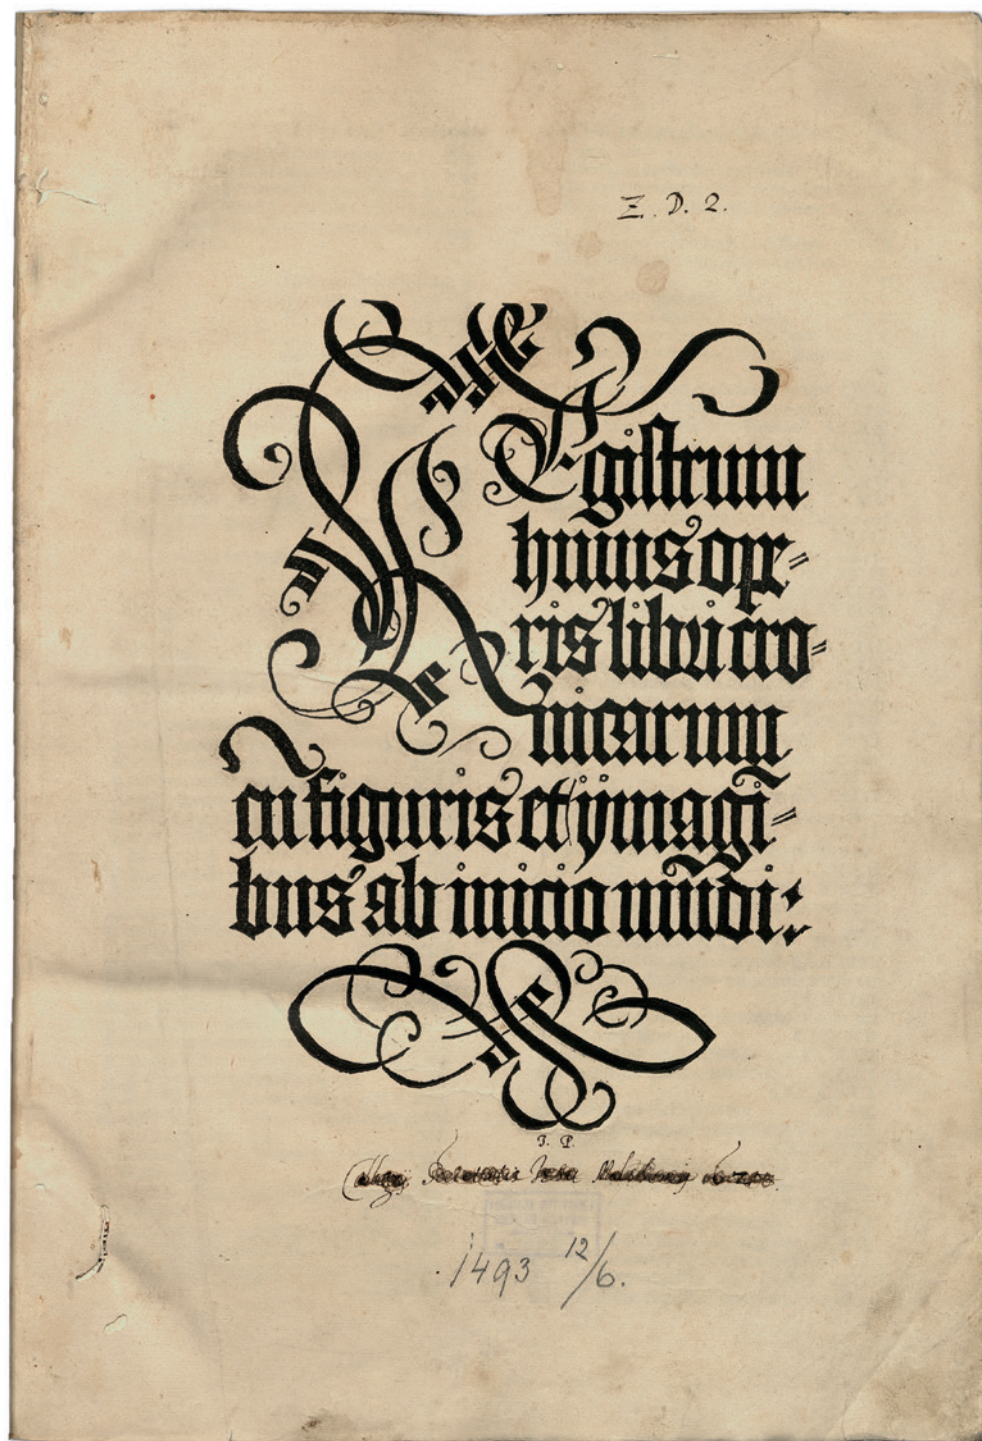 Z. D. 2.
REgistrum
huius ope-
ris libri cro-
nicarum
cū figuris et ymagī-
bus ab inicio mūdi:
J. P.
Societatis Jesu
1493 12/6.